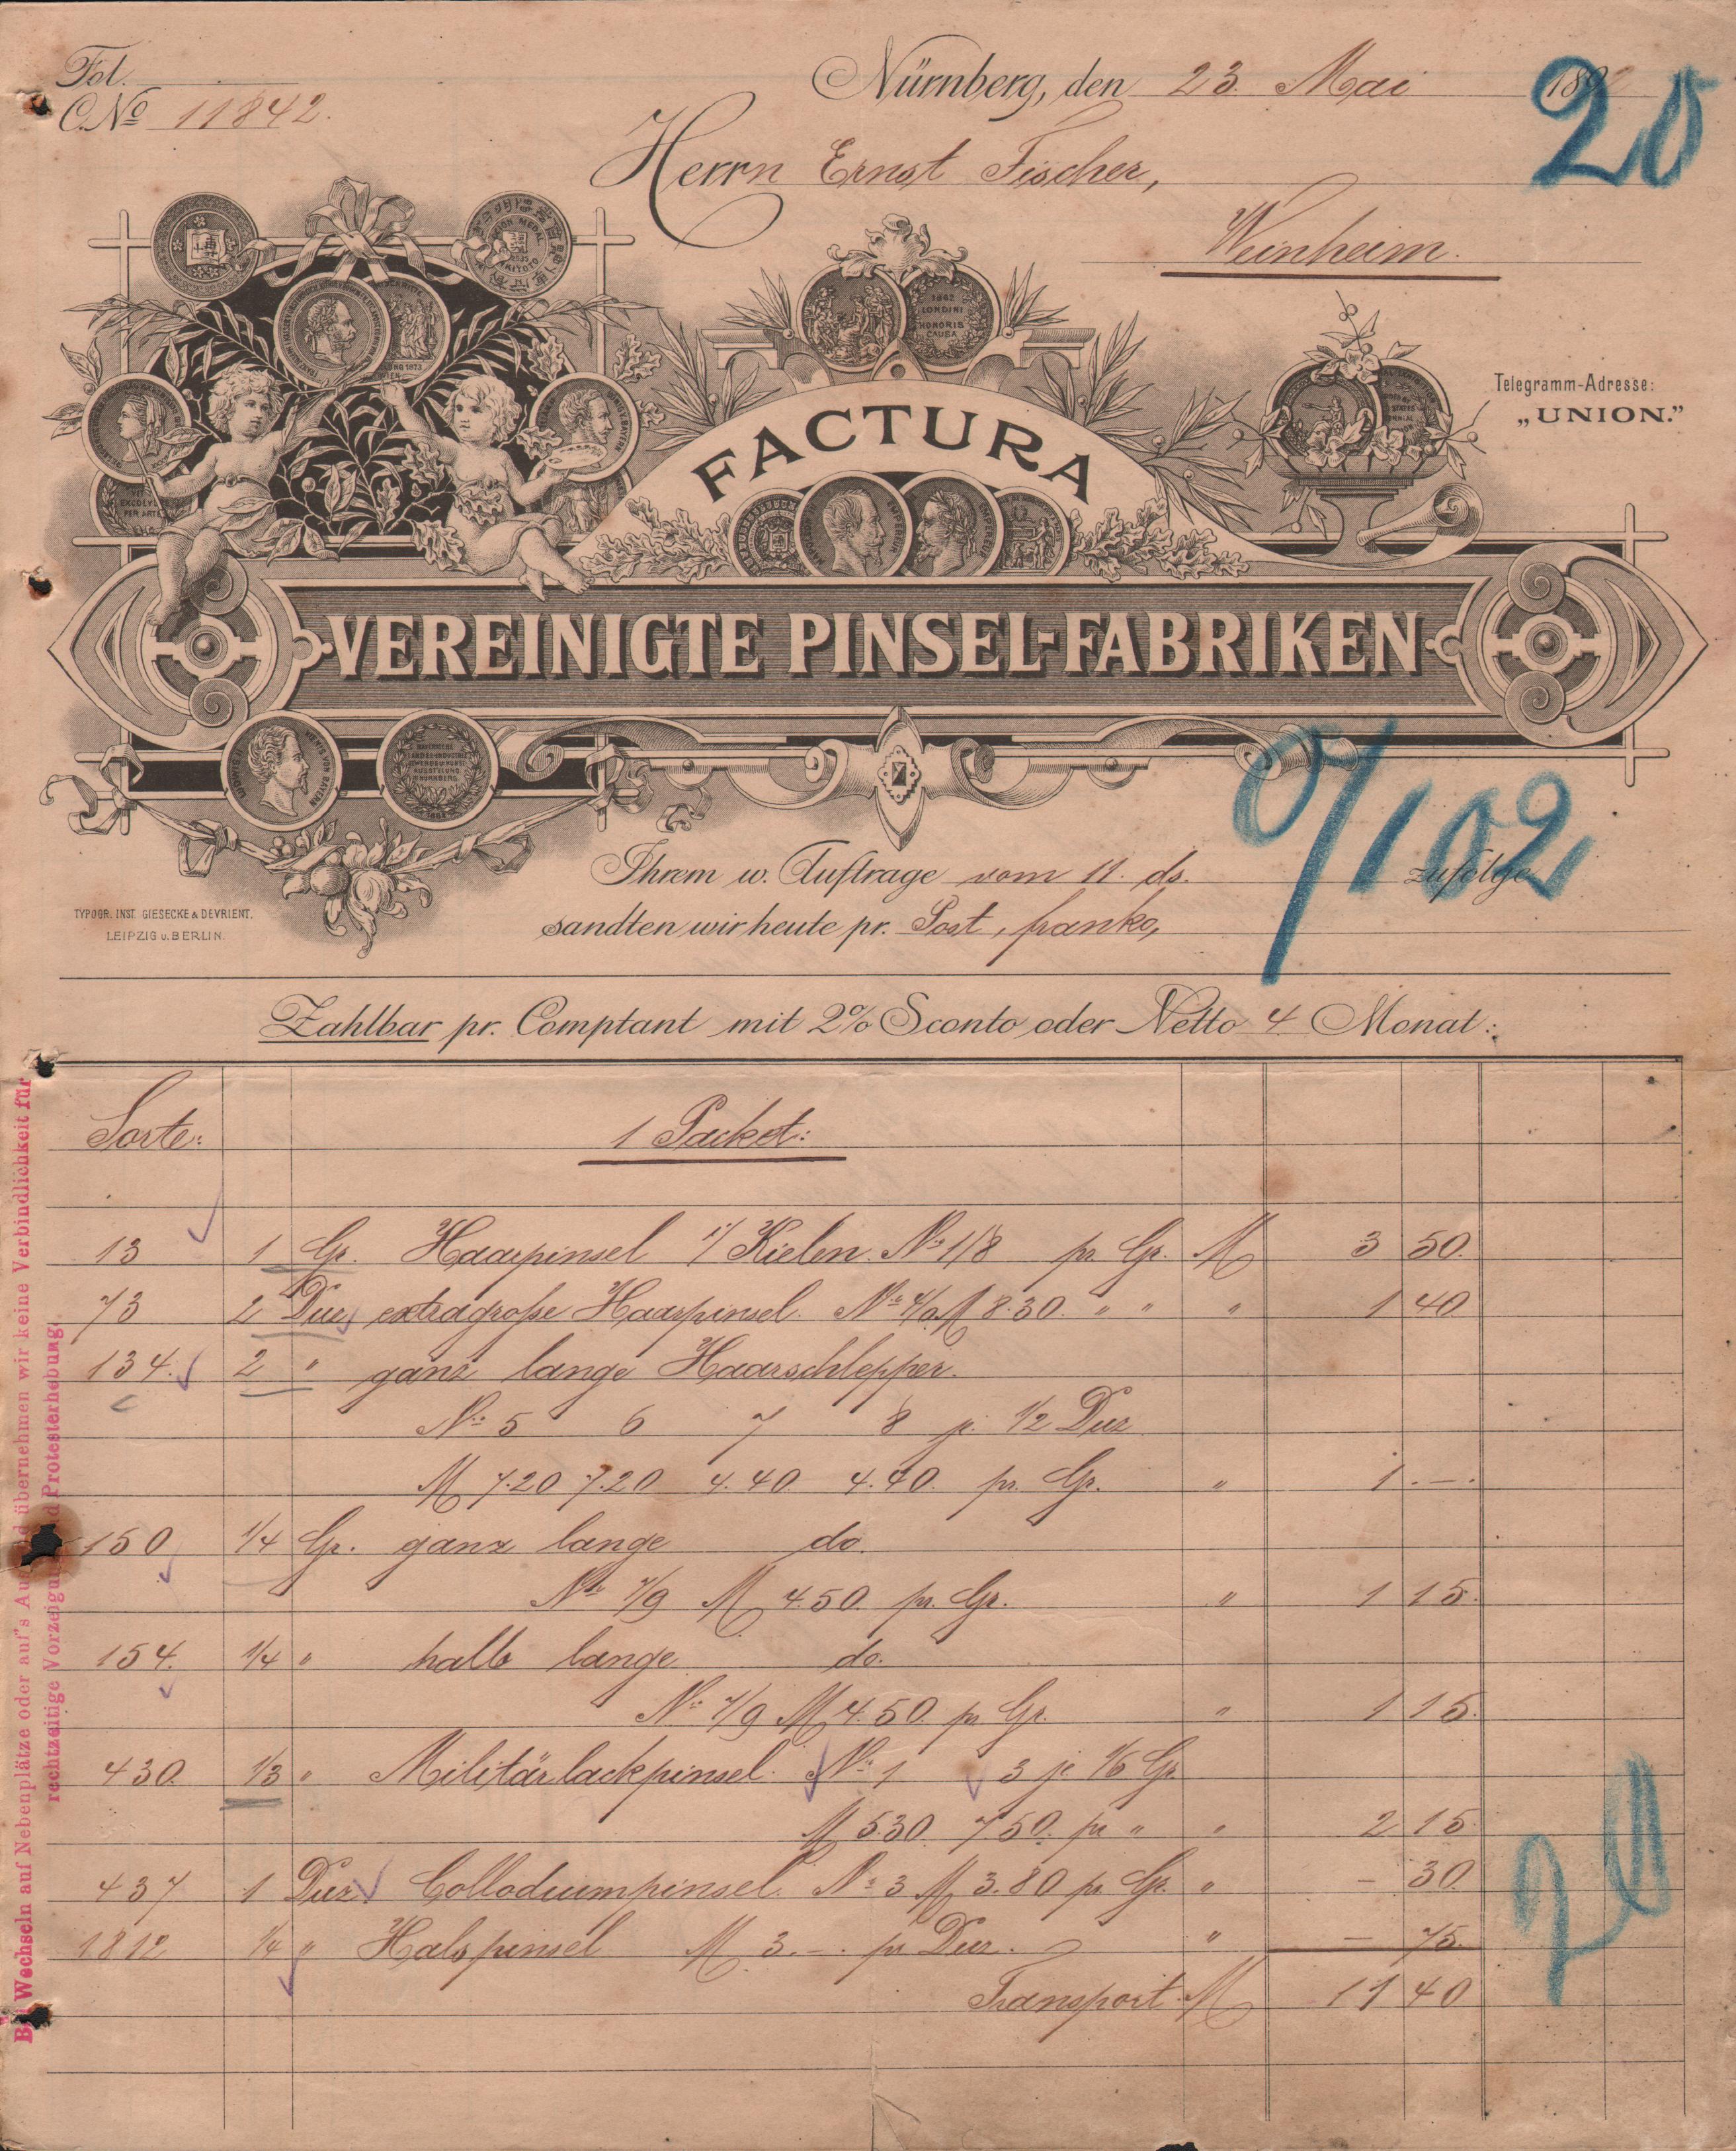 Fol.
C.No 11842.
Nürnberg, den 23. Mai 189
20
Herrn Ernst Fischer,
Weinheim.
1862
LONDINI
HONORIS
CAUSA
FACTURA
Telegramm-Adresse:
„UNION.”
VEREINIGTE PINSEL-FABRIKEN
TYPOGR. INST. GIESECKE & DEVRIENT.
LEIPZIG u. BERLIN.
Ihrem w. Auftrage vom 11. ds. zufolge
sandten wir heute pr. Post, franko,
102
Zahlbar pr. Comptant mit 2% Sconto oder Netto 4 Monat:
Sorte: 1 Packet:
13 1 Gr. Haarpinsel i/ Kielen. No 1/8 pr. Gr. M 3 50.
73 2 Duz. extragroße Haarpinsel. No 4/0 M 8.30. " " " 1 40
134. 2 " ganz lange Haarschlepper.
No 5 6 7 8 je 1/2 Duz
M 7.20 7.20 4.40 4.40 pr. Gr. " 1.—.
150 1/4 Gr. ganz lange do.
No 7/9 M 4.50. pr. Gr. " 1 15.
154. 1/4 " halb lange do.
No 7/9 M 4.50. pr Gr. " 1 15.
430. 1/3 " Militärlackpinsel. No 1 3 je 1/6 Gr
M 5.30. 7.50. pr " " 2 15
437 1 Duz. Collodiumpinsel. No 3 M 3.80 pr. Gr. " — 30.
1812 1/4 " Halspinsel M 3.—. pr Duz. " — 75.
Transport M 11 40
Bei Wechseln auf Nebenplätze oder auf's Ausland übernehmen wir keine Verbindlichkeit für
rechtzeitige Vorzeigung und Protesterhebung.